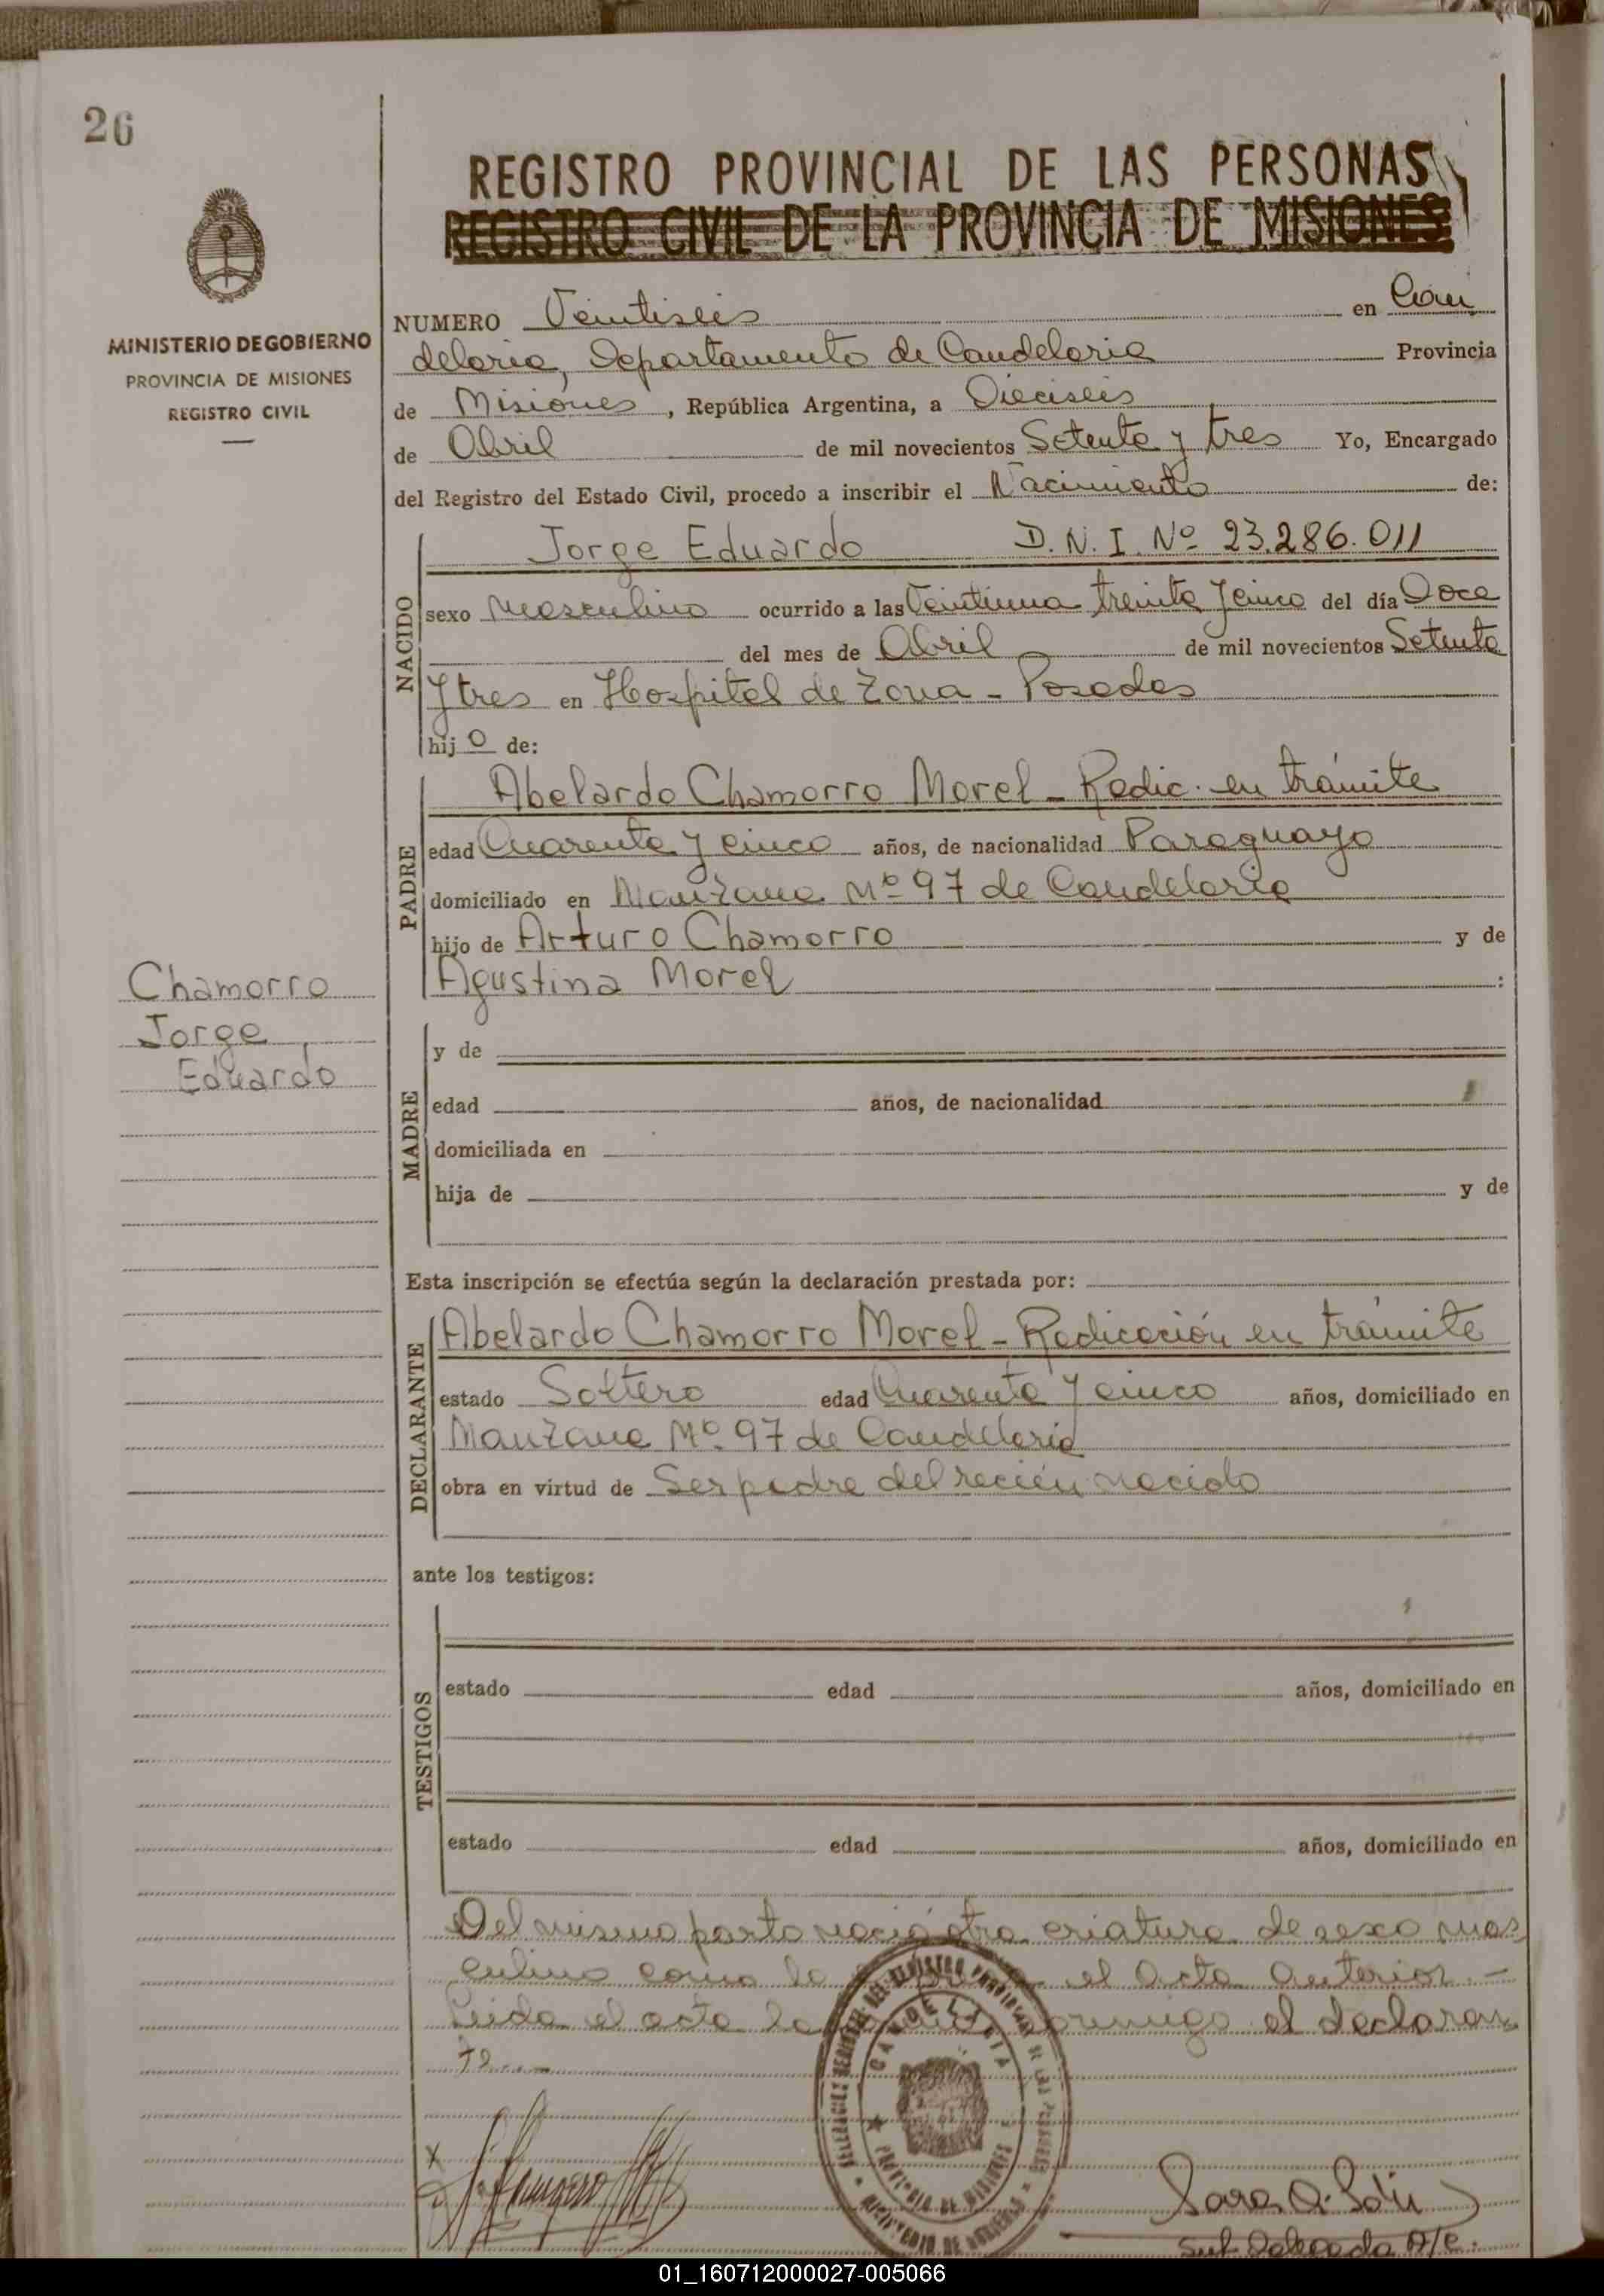 26
REGISTRO PROVINCIAL DE LAS PERSONAS
REGISTRO CIVIL DE LA PROVINCIA DE MISIONES
MINISTERIO DE GOBIERNO
PROVINCIA DE MISIONES
REGISTRO CIVIL
NUMERO Veintiseis en Can
delaria, Departamento de Candelaria Provincia
de Misiones, República Argentina, a Dieciseis
de Abril de mil novecientos Setenta y tres Yo, Encargado
del Registro del Estado Civil, procedo a inscribir el Nacimiento de:
NACIDO
Jorge Eduardo D.N.I. Nº 23.286.011
sexo Masculino ocurrido a las Veintiuna treinta y cinco del día Doce
del mes de Abril de mil novecientos Setenta
y tres en Hospital de Zona - Posadas
hijo de:
PADRE
Abelardo Chamorro Morel - Radic. en trámite
edad Cuarenta y cinco años, de nacionalidad Paraguayo
domiciliado en Manzana Nº 97 de Candelaria
hijo de Arturo Chamorro y de
Agustina Morel :
Chamorro
Jorge
Eduardo
MADRE
y de
edad años, de nacionalidad
domiciliada en
hija de y de
Esta inscripción se efectúa según la declaración prestada por:
DECLARANTE
Abelardo Chamorro Morel - Radicación en trámite
estado Soltero edad Cuarenta y cinco años, domiciliado en
Manzana Nº 97 de Candelaria
obra en virtud de Ser padre del recién nacido
ante los testigos:
TESTIGOS
estado edad años, domiciliado en
estado edad años, domiciliado en
Del mismo parto nació otra criatura de sexo mas
culino como lo el Acta Anterior.-
Leida el acta la conmigo el declaran
te.--
CANDELARIA
PROVINCIA DE MISIONES
MINISTERIO DE GOBIERNO
Sara A.
Sub Delegada A/c.
01_160712000027-005066